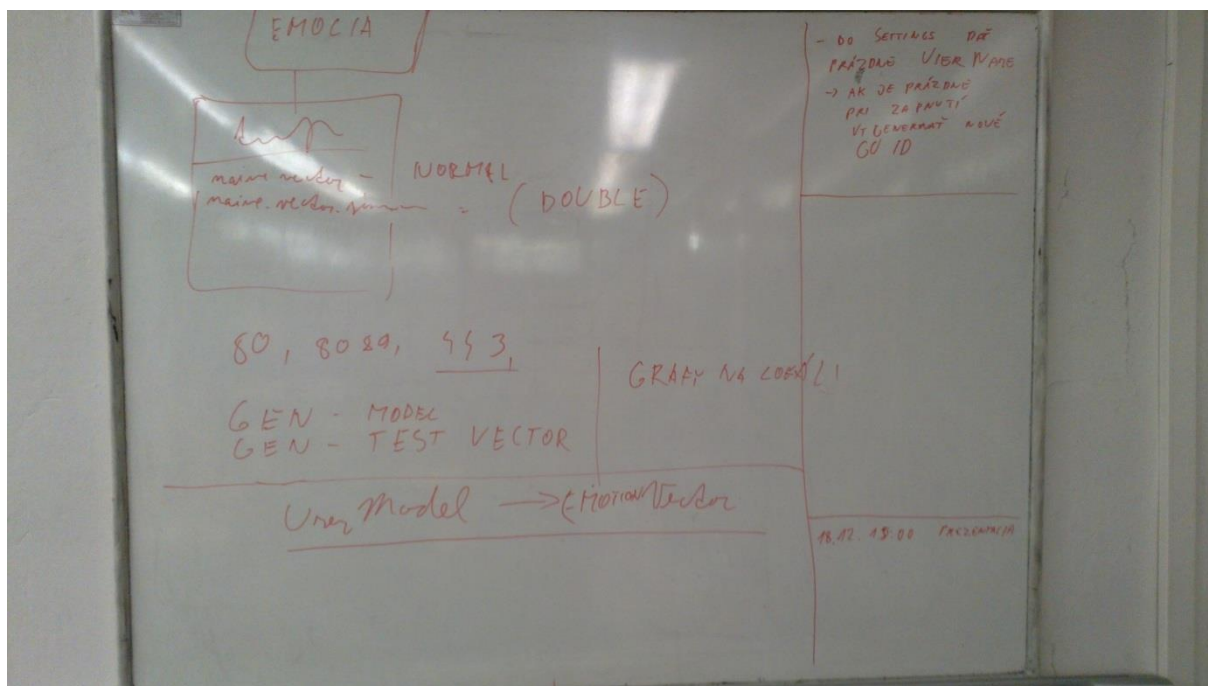 EMOCIA
NORMAL
(DOUBLE)
80, 8089, 443,
GEN - MODEL
GEN - TEST VECTOR
GRAFY NA
User Model → EMOTION Vector
- DO SETTINGS DAŤ
PRÁZDNE USER NAME
→ AK JE PRÁZDNE
PRI ZAPNUTÍ
VYGENEROVAŤ NOVÉ
GUID
18.12. PREZENTÁCIA